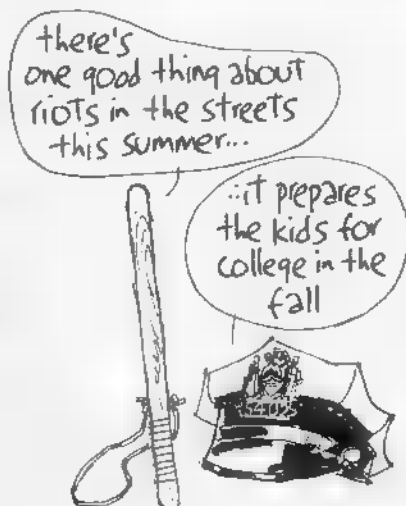 there's
one good thing about
riots in the streets
this summer...
...it prepares
the kids for
college in the
fall